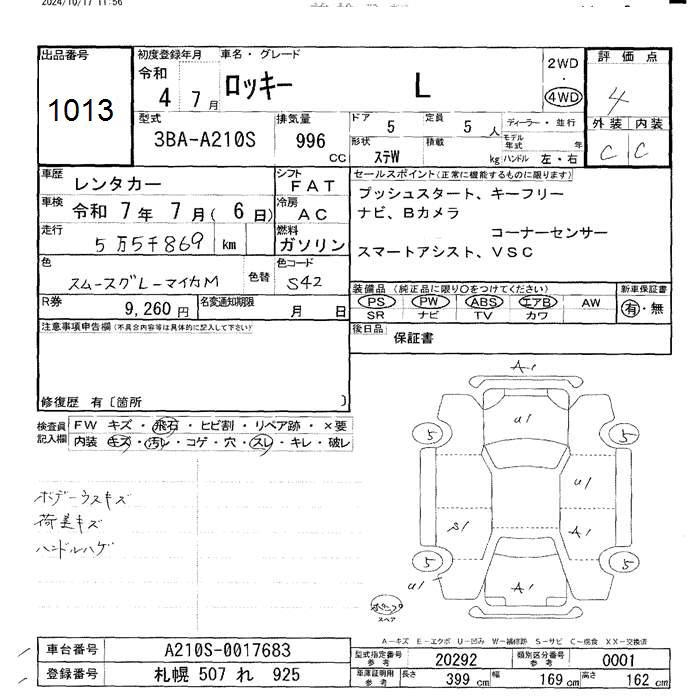 2024/10/17 11:56
出品番号
1013
初度登録年月
令和
4 7月
車名・グレード
ロッキー L
2WD
・
4WD
評価点
4
外装 内装
C C
型式
3BA-A210S
排気量
996
CC
ドア
5
定員
5 人
ディーラー・並行
形状
ステW
積載
kg
モデル年式 年
ハンドル 左・右
車歴
レンタカー
シフト
FAT
車検
令和 7年 7月( 6日)
冷房
AC
走行
5万5千869 km
燃料
ガソリン
色
スムースグレーマイカM
色替
色コード
S42
R券
9,260円
名変通知期限
月 日
セールスポイント(正常に機能するものに限ります)
プッシュスタート、キーフリー
ナビ、Bカメラ
コーナーセンサー
スマートアシスト、VSC
装備品(純正品に限り○をつけてください)
PS PW ABS エアB AW
SR ナビ TV カワ
新車保証書
有・無
後日品
保証書
注意事項申告欄(不具合内容等は具体的に記入して下さい)
修復歴 有〔箇所 〕
検査員
記入欄
FW キズ・飛石・ヒビ割・リペア跡・×要
内装 キズ・汚レ・コゲ・穴・スレ・キレ・破レ
ボデーウスキズ
荷室キズ
ハンドルハゲ
A1
U1
5 5
U1
S1 A1
5 5
U1
A1
スペア
A−キズ E−エクボ U−凹み W−補修跡 S−サビ C−腐食 XX−交換済
車台番号
A210S-0017683
登録番号
札幌 507 れ 925
型式指定番号
参考
20292
類別区分番号
参考
0001
車庫証明用
参考
長さ 399 cm
幅 169 cm
高さ 162 cm